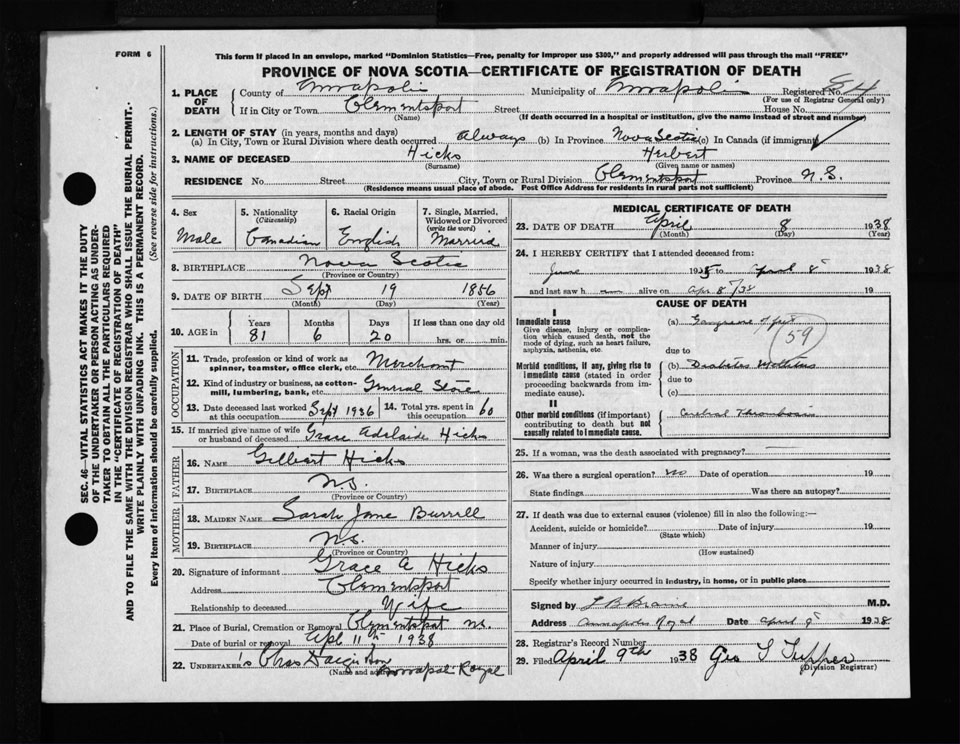 FORM 6
This form if placed in an envelope, marked "Dominion Statistics—Free, penalty for improper use $300," and properly addressed will pass through the mail "FREE"
PROVINCE OF NOVA SCOTIA—CERTIFICATE OF REGISTRATION OF DEATH
1. PLACE OF DEATH County of Annapolis Municipality of Annapolis Registered No.
(For use of Registrar General only)
If in City or Town Clementsport Street House No.
(Name) (If death occurred in a hospital or institution, give the name instead of street and number)
2. LENGTH OF STAY (in years, months and days)
(a) In City, Town or Rural Division where death occurred Always (b) In Province Nova Scotia (c) In Canada (if immigrant)
3. NAME OF DECEASED Hicks Herbert
(Surname) (Given name or names)
RESIDENCE No. Street City, Town or Rural Division Clementsport Province N.S.
(Residence means usual place of abode. Post Office Address for residents in rural parts not sufficient)
SEC. 46—VITAL STATISTICS ACT MAKES IT THE DUTY
OF THE UNDERTAKER OR PERSON ACTING AS UNDER-
TAKER TO OBTAIN ALL THE PARTICULARS REQUIRED
IN THE "CERTIFICATE OF REGISTRATION OF DEATH"
AND TO FILE THE SAME WITH THE DIVISION REGISTRAR WHO SHALL ISSUE THE BURIAL PERMIT.
WRITE PLAINLY WITH UNFADING INK. THIS IS A PERMANENT RECORD.
Every item of information should be carefully supplied. (See reverse side for instructions.)
4. Sex 5. Nationality (Citizenship) 6. Racial Origin 7. Single, Married, Widowed or Divorced (write the word)
Male Canadian English Married
8. BIRTHPLACE Nova Scotia
(Province or Country)
9. DATE OF BIRTH Sept 19 1856
(Month) (Day) (Year)
10. AGE in Years Months Days If less than one day old
81 6 20 hrs. or min.
OCCUPATION
11. Trade, profession or kind of work as spinner, teamster, office clerk, etc. Merchant
12. Kind of industry or business, as cotton-mill, lumbering, bank, etc. General Store
13. Date deceased last worked at this occupation Sept 1936 14. Total yrs. spent in this occupation 60
15. If married give name of wife or husband of deceased Grace Adelaide Hicks
FATHER
16. NAME Gilbert Hicks
17. BIRTHPLACE N.S.
(Province or Country)
MOTHER
18. MAIDEN NAME Sarah Jane Burrill
19. BIRTHPLACE N.S.
(Province or Country)
20. Signature of informant Grace A Hicks
Address Clementsport
Relationship to deceased Wife
21. Place of Burial, Cremation or Removal Clementsport N.S.
Date of burial or removal Apl 11th 1938
22. UNDERTAKER's Chas
(Name and address) Annapolis Royal
MEDICAL CERTIFICATE OF DEATH
23. DATE OF DEATH April 8 1938
(Month) (Day) (Year)
24. I HEREBY CERTIFY that I attended deceased from:
June 193 to April 8 1938
and last saw h alive on Apr 8/38 19
CAUSE OF DEATH
I
Immediate cause
Give disease, injury or complication which caused death, not the mode of dying, such as heart failure, asphyxia, asthenia, etc.
(a) Gangrene of feet
59
due to
Morbid conditions, if any, giving rise to immediate cause (stated in order proceeding backwards from immediate cause).
(b) Diabetes Mellitus
due to
(c)
II
Other morbid conditions (if important) contributing to death but not causally related to immediate cause.
Cerebral Thrombosis
25. If a woman, was the death associated with pregnancy?
26. Was there a surgical operation? no Date of operation 19
State findings Was there an autopsy?
27. If death was due to external causes (violence) fill in also the following:—
Accident, suicide or homicide? Date of injury 19
(State which)
Manner of injury
(How sustained)
Nature of injury
Specify whether injury occurred in industry, in home, or in public place
Signed by L B Braine M.D.
Address Annapolis Royal Date April 9 1938
28. Registrar's Record Number
29. Filed April 9th 1938 Geo S Tupper
(Division Registrar)